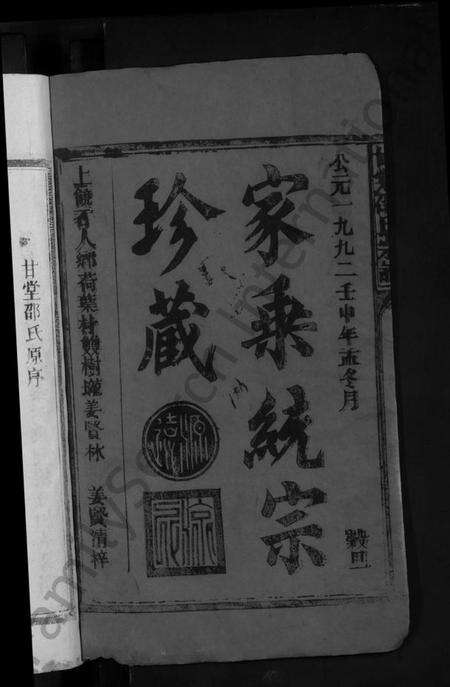 公元一九九二壬申年孟冬月
穀旦
家乘統宗
珍藏
上饒石人鄉荷葉村
樹壠姜賢林 姜賢清梓
甘堂邵氏原序